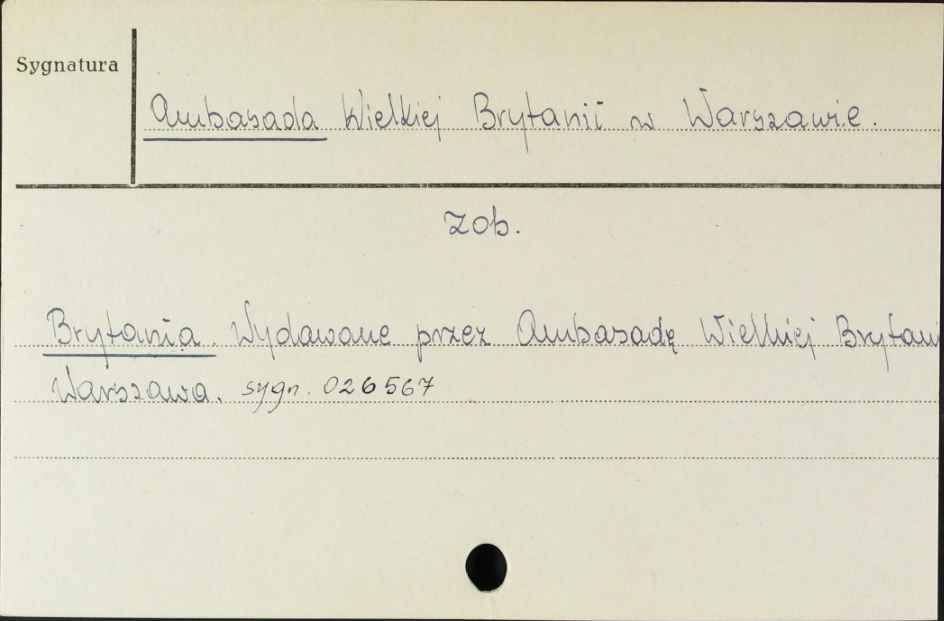 Sygnatura
Ambasada Wielkiej Brytanii w Warszawie.
zob.
Brytania. Wydawane przez Ambasadę Wielkiej Brytani
Warszawa. sygn. 026567